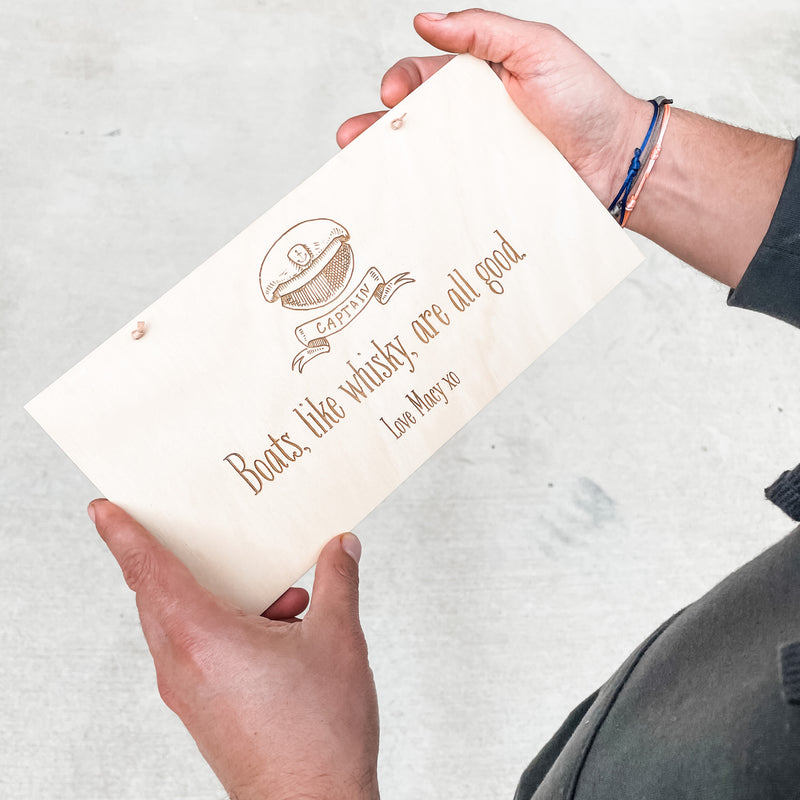 CAPTAIN
Boats, like whisky, are all good.
Love Macy xo